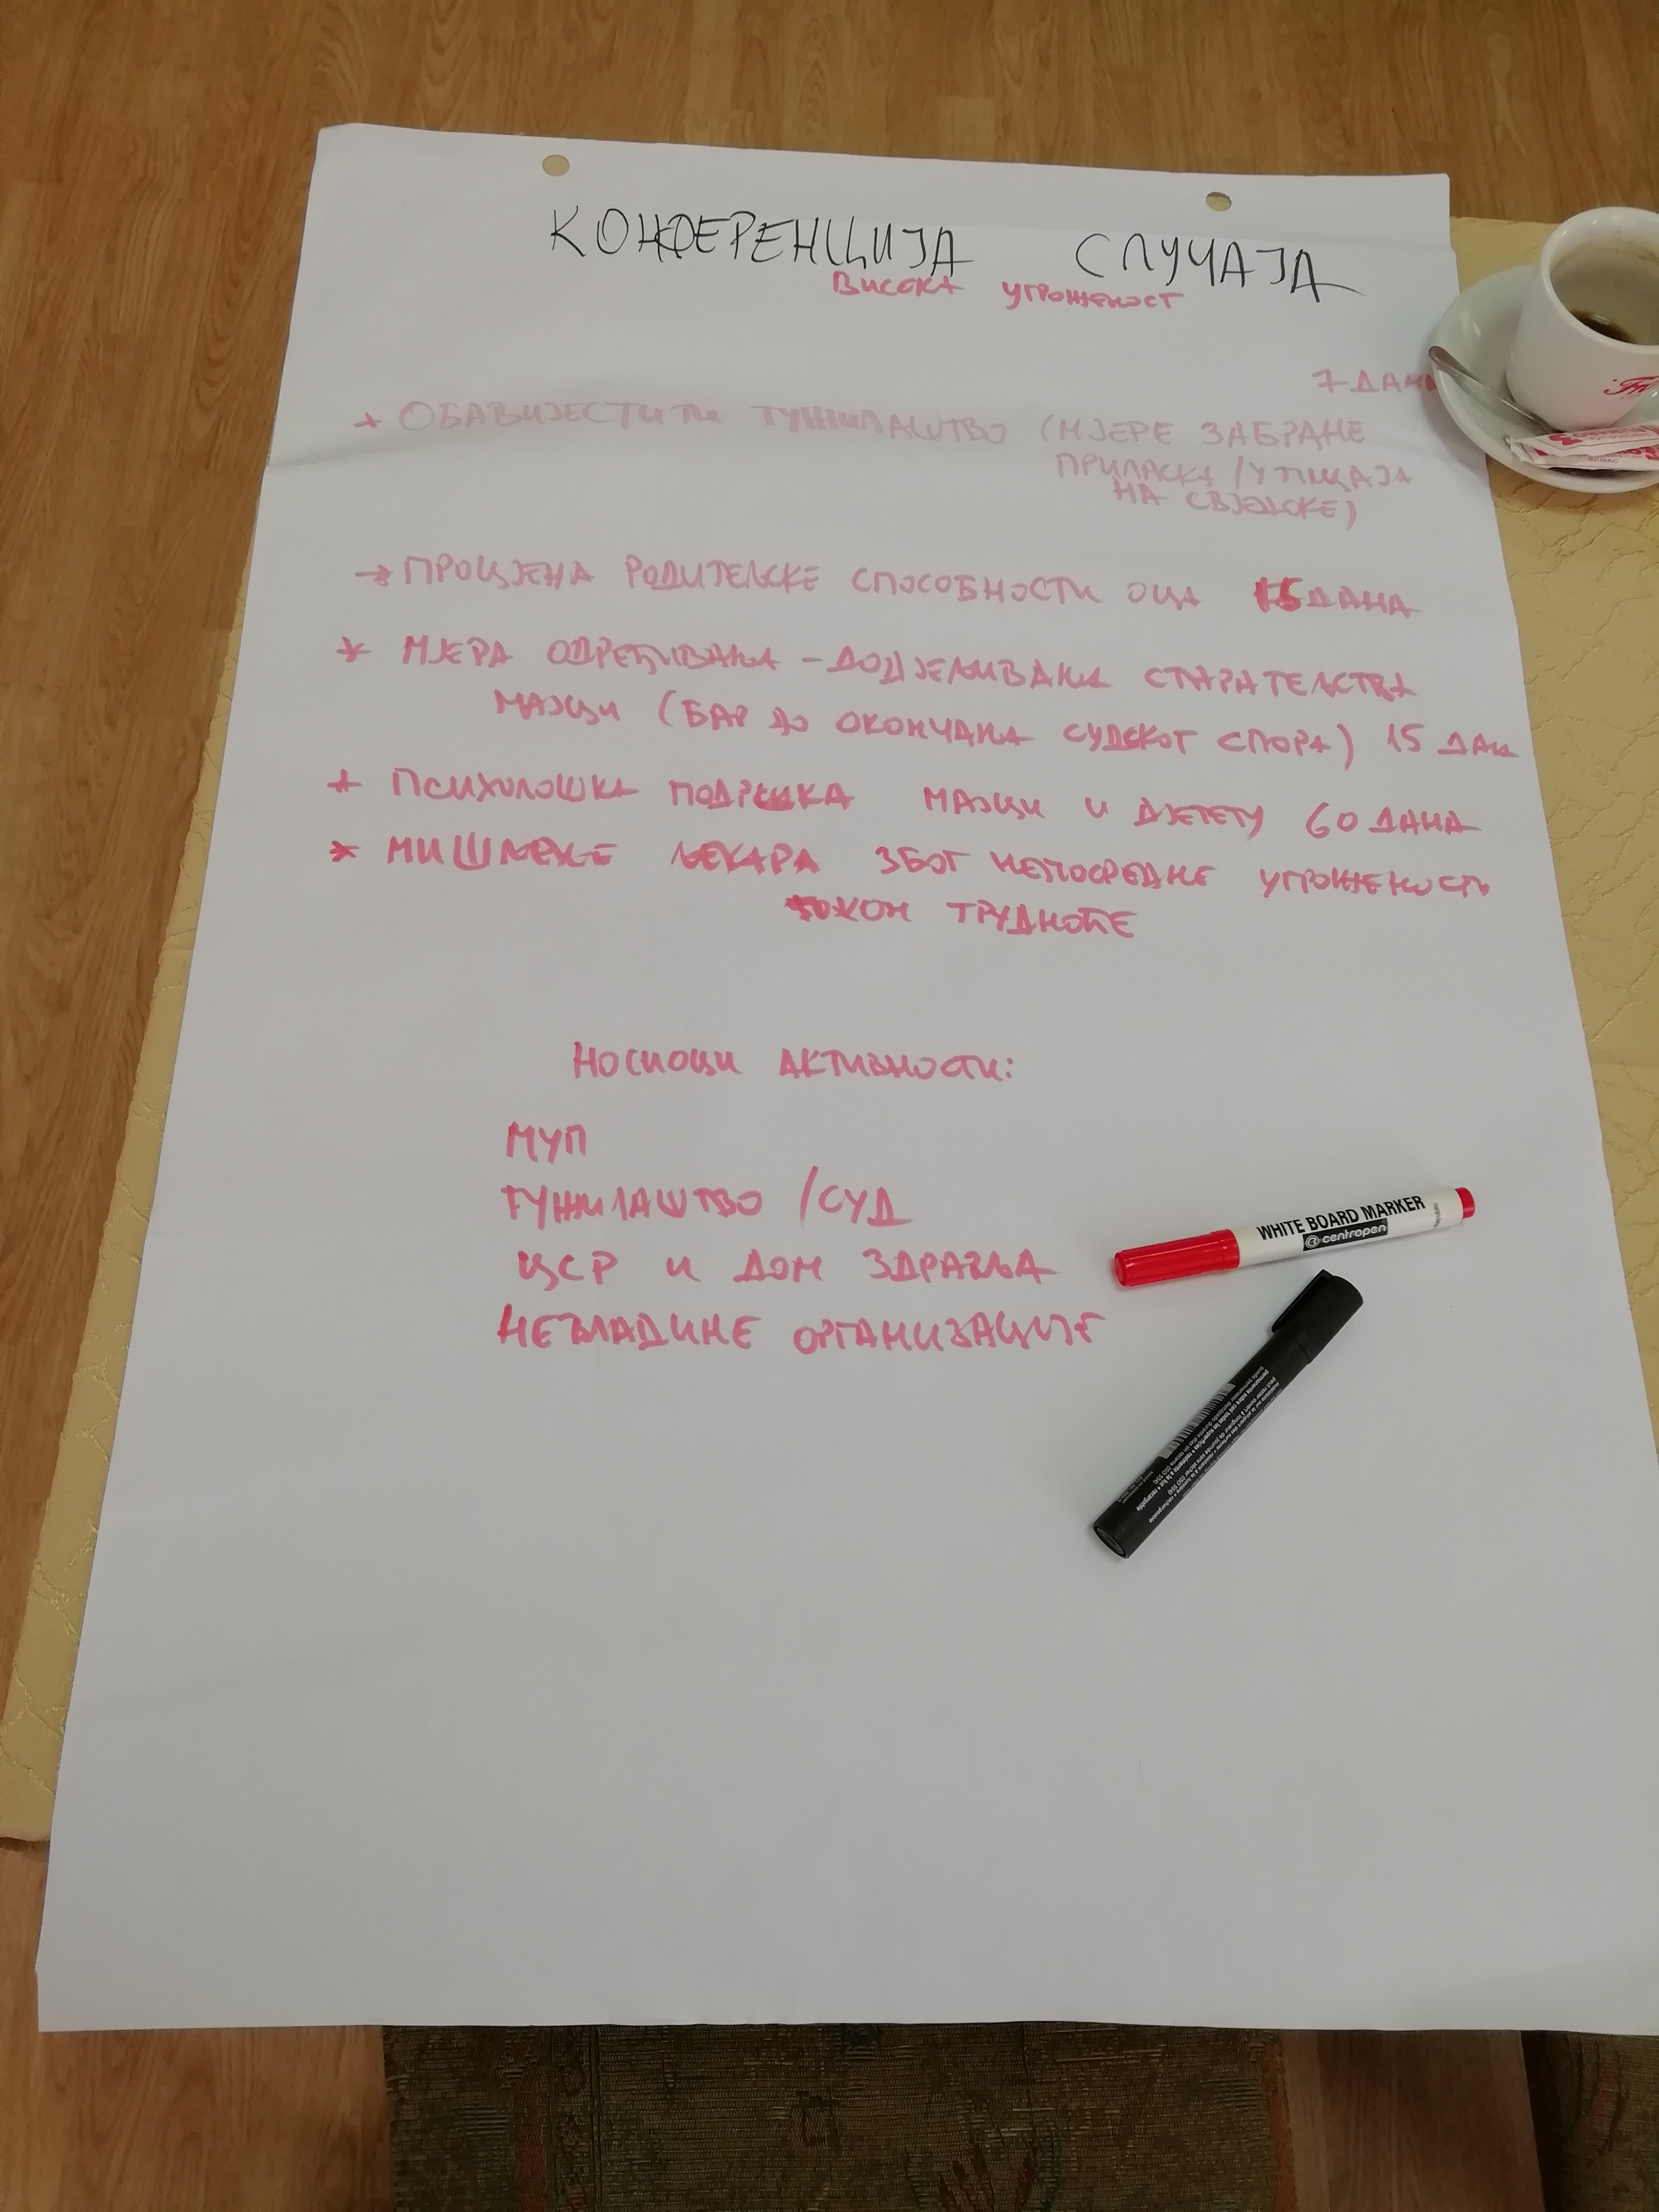 КОНФЕРЕНЦИЈА СЛУЧАЈА
ВИСОКА УГРОЖЕНОСТ
7 ДАНА
* ОБАВИЈЕСТИТИ ТУЖИЛАШТВО (МЈЕРЕ ЗАБРАНЕ
ПРИЛАСКА / УТИЦАЈА
НА СВЈЕДОКЕ)
→ ПРОЦЈЕНА РОДИТЕЉСКЕ СПОСОБНОСТИ ОЦА 15 ДАНА
* МЈЕРА ОДРЕЂИВАЊА - ДОДЈЕЉИВАЊА СТАРАТЕЉСТВА
МАЈЦИ (БАР ДО ОКОНЧАЊА СУДСКОГ СПОРА) 15 ДАНА
* ПСИХОЛОШКА ПОДРШКА МАЈЦИ И ДЈЕТЕТУ 60 ДАНА
* МИШЉЕЊЕ ЉЕКАРА ЗБОГ НЕПОСРЕДНЕ УГРОЖЕНОСТИ
ТОКОМ ТРУДНОЋЕ
НОСИОЦИ АКТИВНОСТИ:
МУП
ТУЖИЛАШТВО / СУД
ЦСР И ДОМ ЗДРАВЉА
НЕВЛАДИНЕ ОРГАНИЗАЦИЈЕ
WHITE BOARD MARKER
centropen